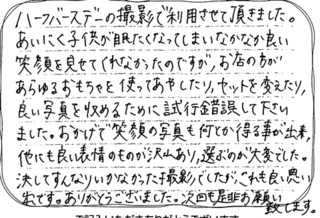 ハーフバースデーの撮影で利用させて頂きました。
あいにく子供が眠たくなってしまいなかなか良い
笑顔を見せてくれなかったのですが、お店の方が
あらゆるおもちゃを使ってあやしたり、セットを変えたり、
良い写真を収めるために試行錯誤して下さい
ました。おかげで笑顔の写真も何とか得る事が出来、
他にも良い表情のものが沢山あり、選ぶのが大変でした。
決してすんなりいかなかった撮影でしたが、これも良い思い
出です。ありがとうございました。次回も是非お願い
致します。